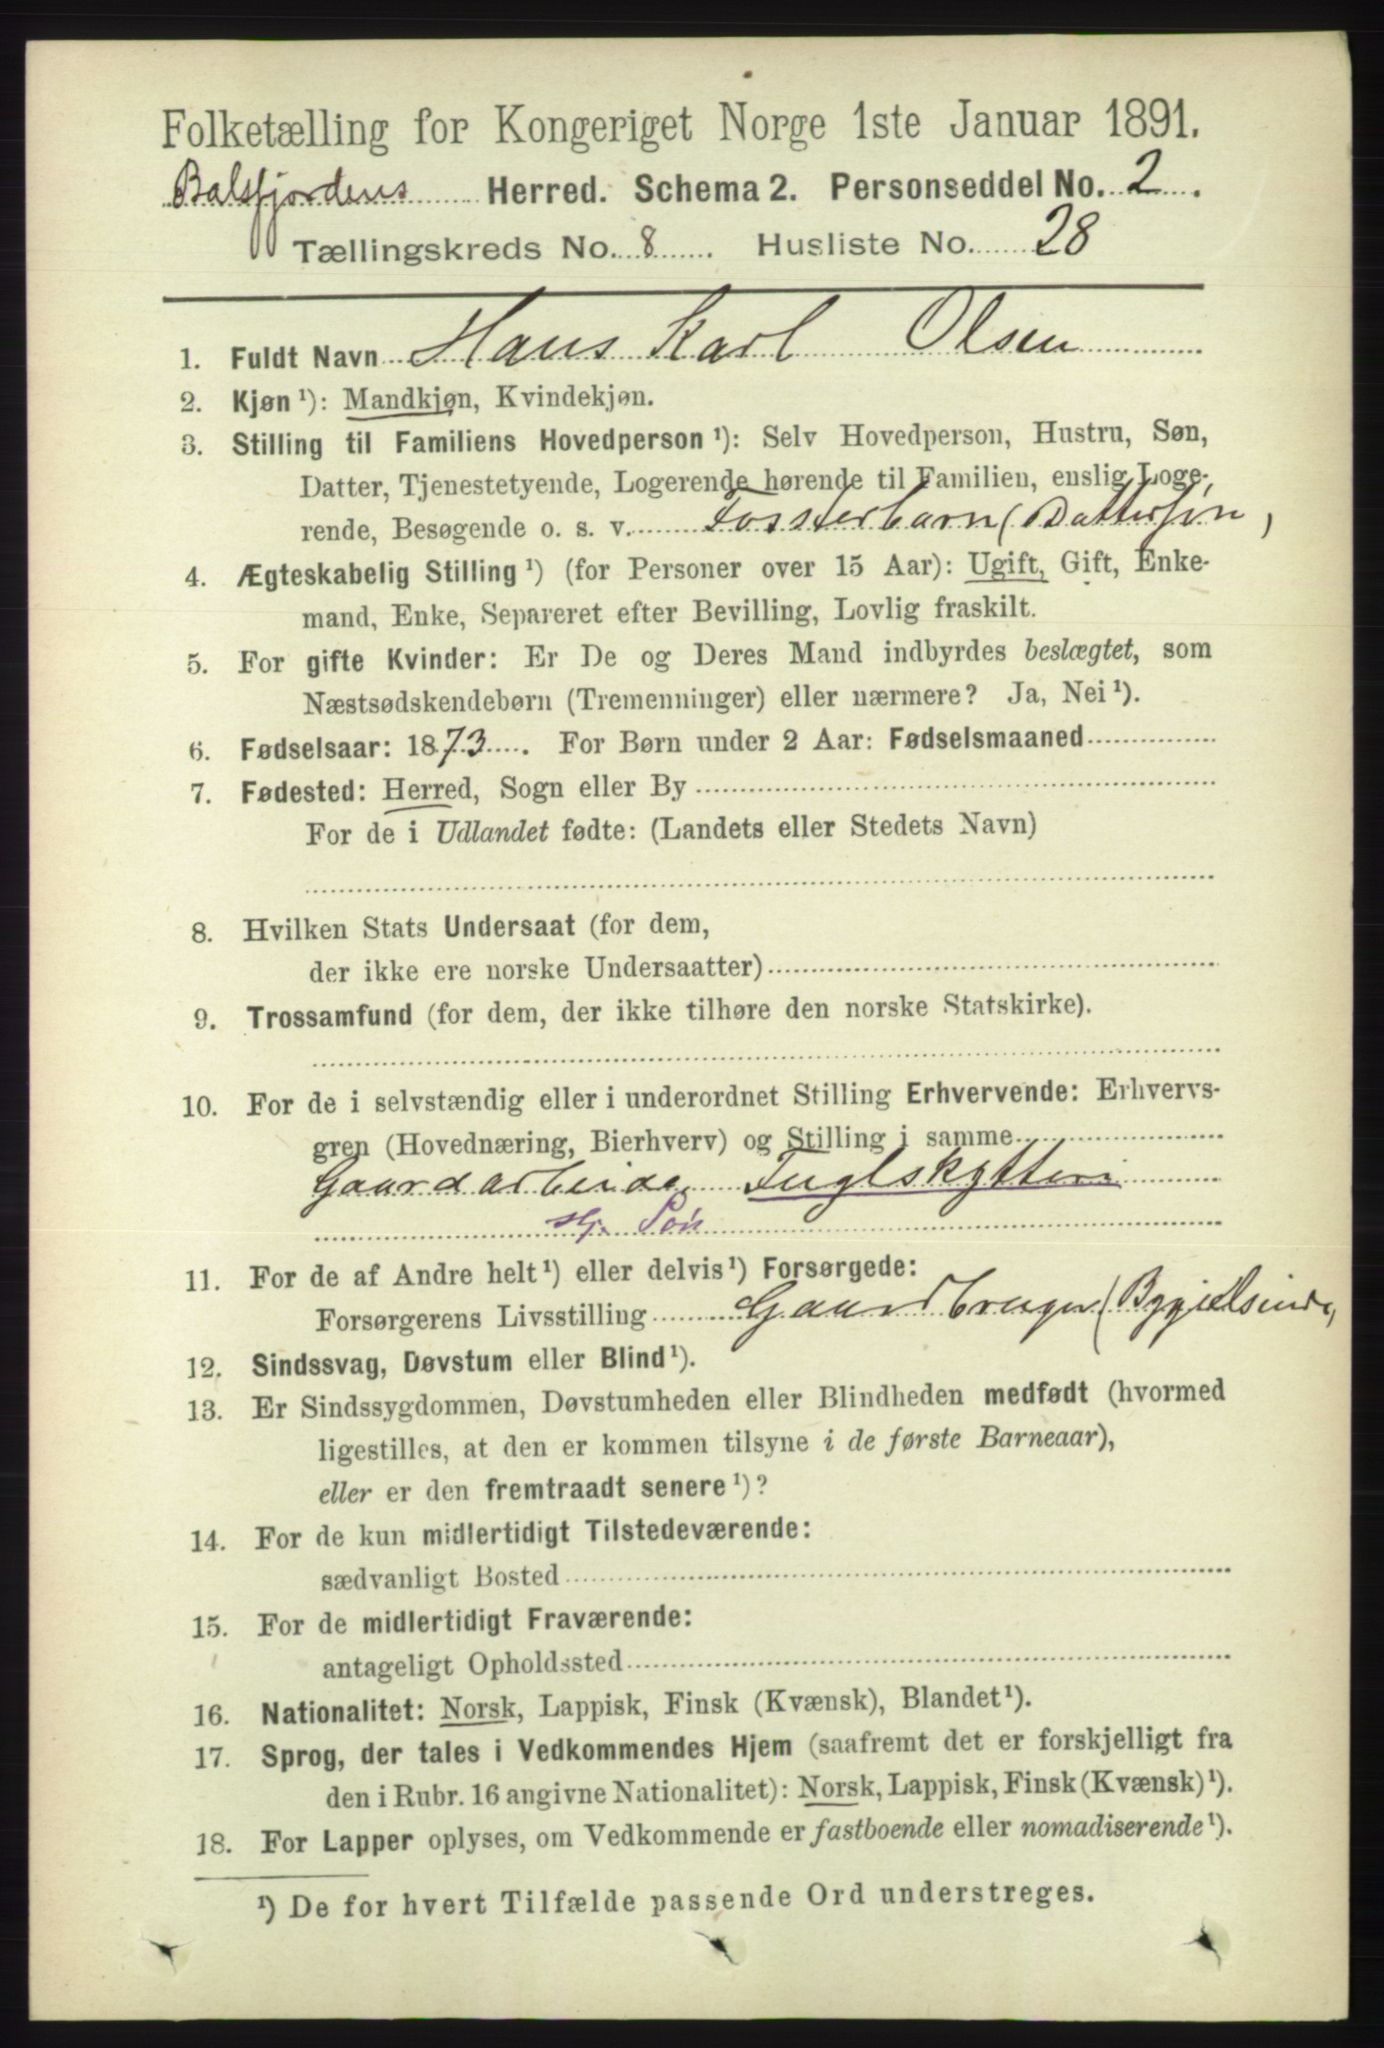 Folketælling for Kongeriget Norge 1ste Januar 1891.
Balsfjordens Herred. Schema 2. Personseddel No. 2.
Tællingskreds No. 8. Husliste No. 28
1. Fuldt Navn Hans Karl Olsen
2. Kjøn ¹): Mandkjøn, Kvindekjøn.
3. Stilling til Familiens Hovedperson ¹): Selv Hovedperson, Hustru, Søn,
Datter, Tjenestetyende, Logerende hørende til Familien, enslig Loge-
rende, Besøgende o. s. v. Fosterbarn (Dattersøn)
4. Ægteskabelig Stilling ¹) (for Personer over 15 Aar): Ugift, Gift, Enke-
mand, Enke, Separeret efter Bevilling, Lovlig fraskilt.
5. For gifte Kvinder: Er De og Deres Mand indbyrdes beslægtet, som
Næstsødskendebørn (Tremenninger) eller nærmere? Ja, Nei ¹).
6. Fødselsaar: 1873. For Børn under 2 Aar: Fødselsmaaned
7. Fødested: Herred, Sogn eller By
For de i Udlandet fødte: (Landets eller Stedets Navn)
8. Hvilken Stats Undersaat (for dem,
der ikke ere norske Undersaatter)
9. Trossamfund (for dem, der ikke tilhøre den norske Statskirke).
10. For de i selvstændig eller i underordnet Stilling Erhvervende: Erhvervs-
gren (Hovednæring, Bierhverv) og Stilling i samme
Gaardarbeide, Fuglskytteri
hj. Søn
11. For de af Andre helt ¹) eller delvis ¹) Forsørgede:
Forsørgerens Livsstilling Gaardbruger (Bygselsinde)
12. Sindssvag, Døvstum eller Blind ¹).
13. Er Sindssygdommen, Døvstumheden eller Blindheden medfødt (hvormed
ligestilles, at den er kommen tilsyne i de første Barneaar),
eller er den fremtraadt senere ¹)?
14. For de kun midlertidigt Tilstedeværende:
sædvanligt Bosted
15. For de midlertidigt Fraværende:
antageligt Opholdssted
16. Nationalitet: Norsk, Lappisk, Finsk (Kvænsk), Blandet ¹).
17. Sprog, der tales i Vedkommendes Hjem (saafremt det er forskjelligt fra
den i Rubr. 16 angivne Nationalitet): Norsk, Lappisk, Finsk (Kvænsk) ¹).
18. For Lapper oplyses, om Vedkommende er fastboende eller nomadiserende ¹).
¹) De for hvert Tilfælde passende Ord understreges.